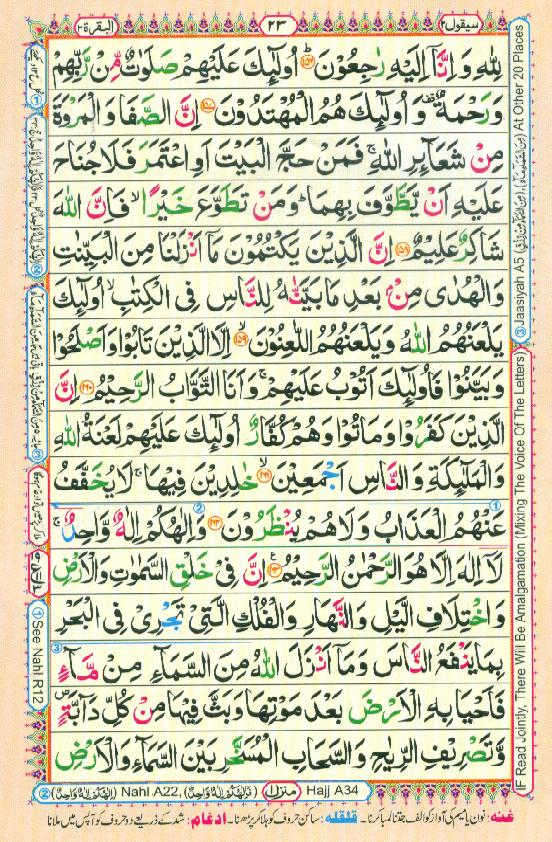 سیقول ۲
۲۳
البقرة ۲
لِلّٰهِ وَ اِنَّاۤ اِلَیْهِ رٰجِعُوْنَ ﴿۱۵۶﴾ اُولٰٓئِكَ عَلَیْهِمْ صَلَوٰتٌ مِّنْ رَّبِّهِمْ
وَرَحْمَةٌ ۫ وَ اُولٰٓئِكَ هُمُ الْمُهْتَدُوْنَ ﴿۱۵۷﴾ اِنَّ الصَّفَا وَ الْمَرْوَةَ
مِنْ شَعَآئِرِ اللّٰهِ ۚ فَمَنْ حَجَّ الْبَیْتَ اَوِ اعْتَمَرَ فَلَا جُنَاحَ
عَلَیْهِ اَنْ یَّطَّوَّفَ بِهِمَا ؕ وَمَنْ تَطَوَّعَ خَیْرًا ۙ فَاِنَّ اللّٰهَ
شَاكِرٌ عَلِیْمٌ ﴿۱۵۸﴾ اِنَّ الَّذِیْنَ یَكْتُمُوْنَ مَاۤ اَنْزَلْنَا مِنَ الْبَیِّنٰتِ
وَالْهُدٰی مِنْۢ بَعْدِ مَا بَیَّنّٰهُ لِلنَّاسِ فِی الْكِتٰبِ ۙ اُولٰٓئِكَ
یَلْعَنُهُمُ اللّٰهُ وَ یَلْعَنُهُمُ اللّٰعِنُوْنَ ﴿۱۵۹﴾ اِلَّا الَّذِیْنَ تَابُوْا وَاَصْلَحُوْا
وَبَیَّنُوْا فَاُولٰٓئِكَ اَتُوْبُ عَلَیْهِمْ ۚ وَ اَنَا التَّوَّابُ الرَّحِیْمُ ﴿۱۶۰﴾ اِنَّ
الَّذِیْنَ كَفَرُوْا وَمَاتُوْا وَهُمْ كُفَّارٌ اُولٰٓئِكَ عَلَیْهِمْ لَعْنَةُ اللّٰهِ
وَالْمَلٰٓئِكَةِ وَ النَّاسِ اَجْمَعِیْنَ ﴿۱۶۱﴾ خٰلِدِیْنَ فِیْهَا ۚ لَا یُخَفَّفُ
عَنْهُمُ الْعَذَابُ وَ لَا هُمْ یُنْظَرُوْنَ ﴿۱۶۲﴾ وَ اِلٰهُكُمْ اِلٰهٌ وَّاحِدٌ ۚ
لَاۤ اِلٰهَ اِلَّا هُوَ الرَّحْمٰنُ الرَّحِیْمُ ﴿۱۶۳﴾ اِنَّ فِیْ خَلْقِ السَّمٰوٰتِ وَ الْاَرْضِ
وَ اخْتِلَافِ الَّیْلِ وَ النَّهَارِ وَ الْفُلْكِ الَّتِیْ تَجْرِیْ فِی الْبَحْرِ
بِمَا یَنْفَعُ النَّاسَ وَ مَاۤ اَنْزَلَ اللّٰهُ مِنَ السَّمَآءِ مِنْ مَّآءٍ
فَاَحْیَا بِهِ الْاَرْضَ بَعْدَ مَوْتِهَا وَبَثَّ فِیْهَا مِنْ كُلِّ دَآبَّةٍ ۪
وَّتَصْرِیْفِ الرِّیٰحِ وَ السَّحَابِ الْمُسَخَّرِ بَیْنَ السَّمَآءِ وَ الْاَرْضِ
① See Nahl R12
③ Jaasiyah A5 At Other 20 Places
IF Read Jointly, There Will Be Amalgamation (Mixing The Voice Of The Letters)
② Nahl A22, Hajj A34
منزل ۱
غنه: نون یا میم کی آواز کو الف جتنا لمبا کرنا۔ قلقله: ساکن حروف کو ہلا کر پڑھنا۔ ادغام: شد کے ذریعے دو حروف کو آپس میں ملانا